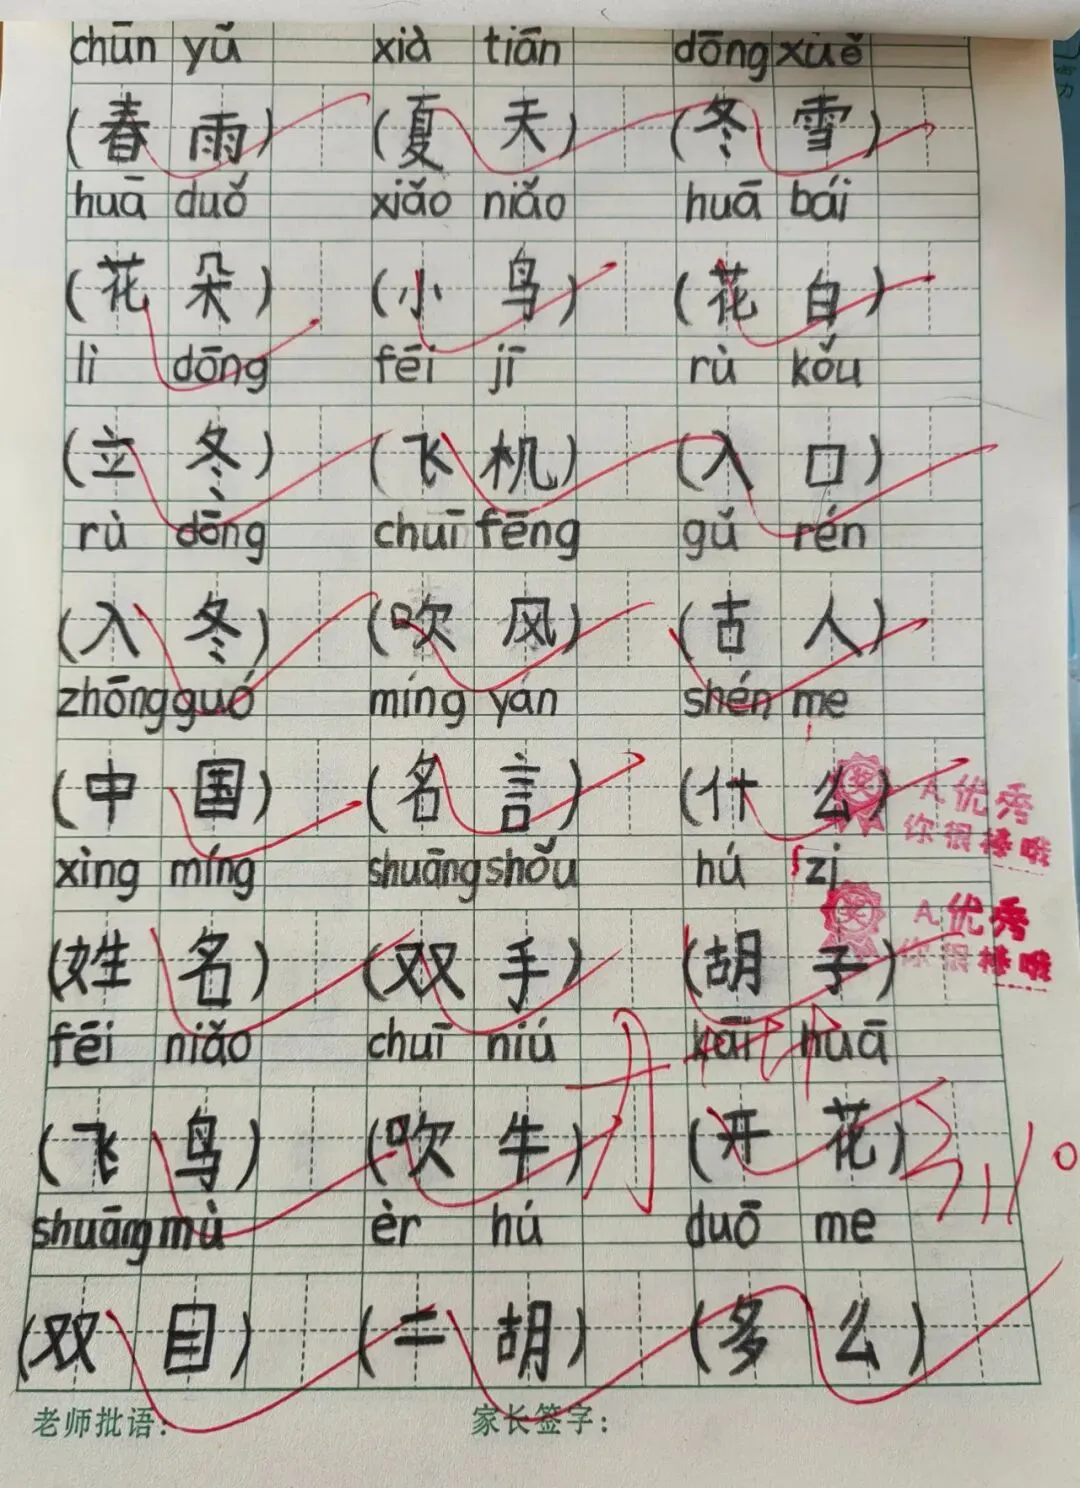 chūn yǔ xià tiān dōng xuě
(春雨) (夏天) (冬雪)
huā duǒ xiǎo niǎo huā bái
(花朵) (小鸟) (花白)
lì dōng fēi jī rù kǒu
(立冬) (飞机) (入口)
rù dōng chuī fēng gǔ rén
(入冬) (吹风) (古人)
zhōng guó míng yán shén me
(中国) (名言) (什么)
奖 A.优秀
你很棒哦
xìng míng shuāng shǒu hú zi
(姓名) (双手) (胡子)
奖 A.优秀
你很棒哦
fēi niǎo chuī niú kāi huā
(飞鸟) (吹牛) (开花)
shuāng mù èr hú duō me
(双目) (二胡) (多么)
老师批语: 家长签字: